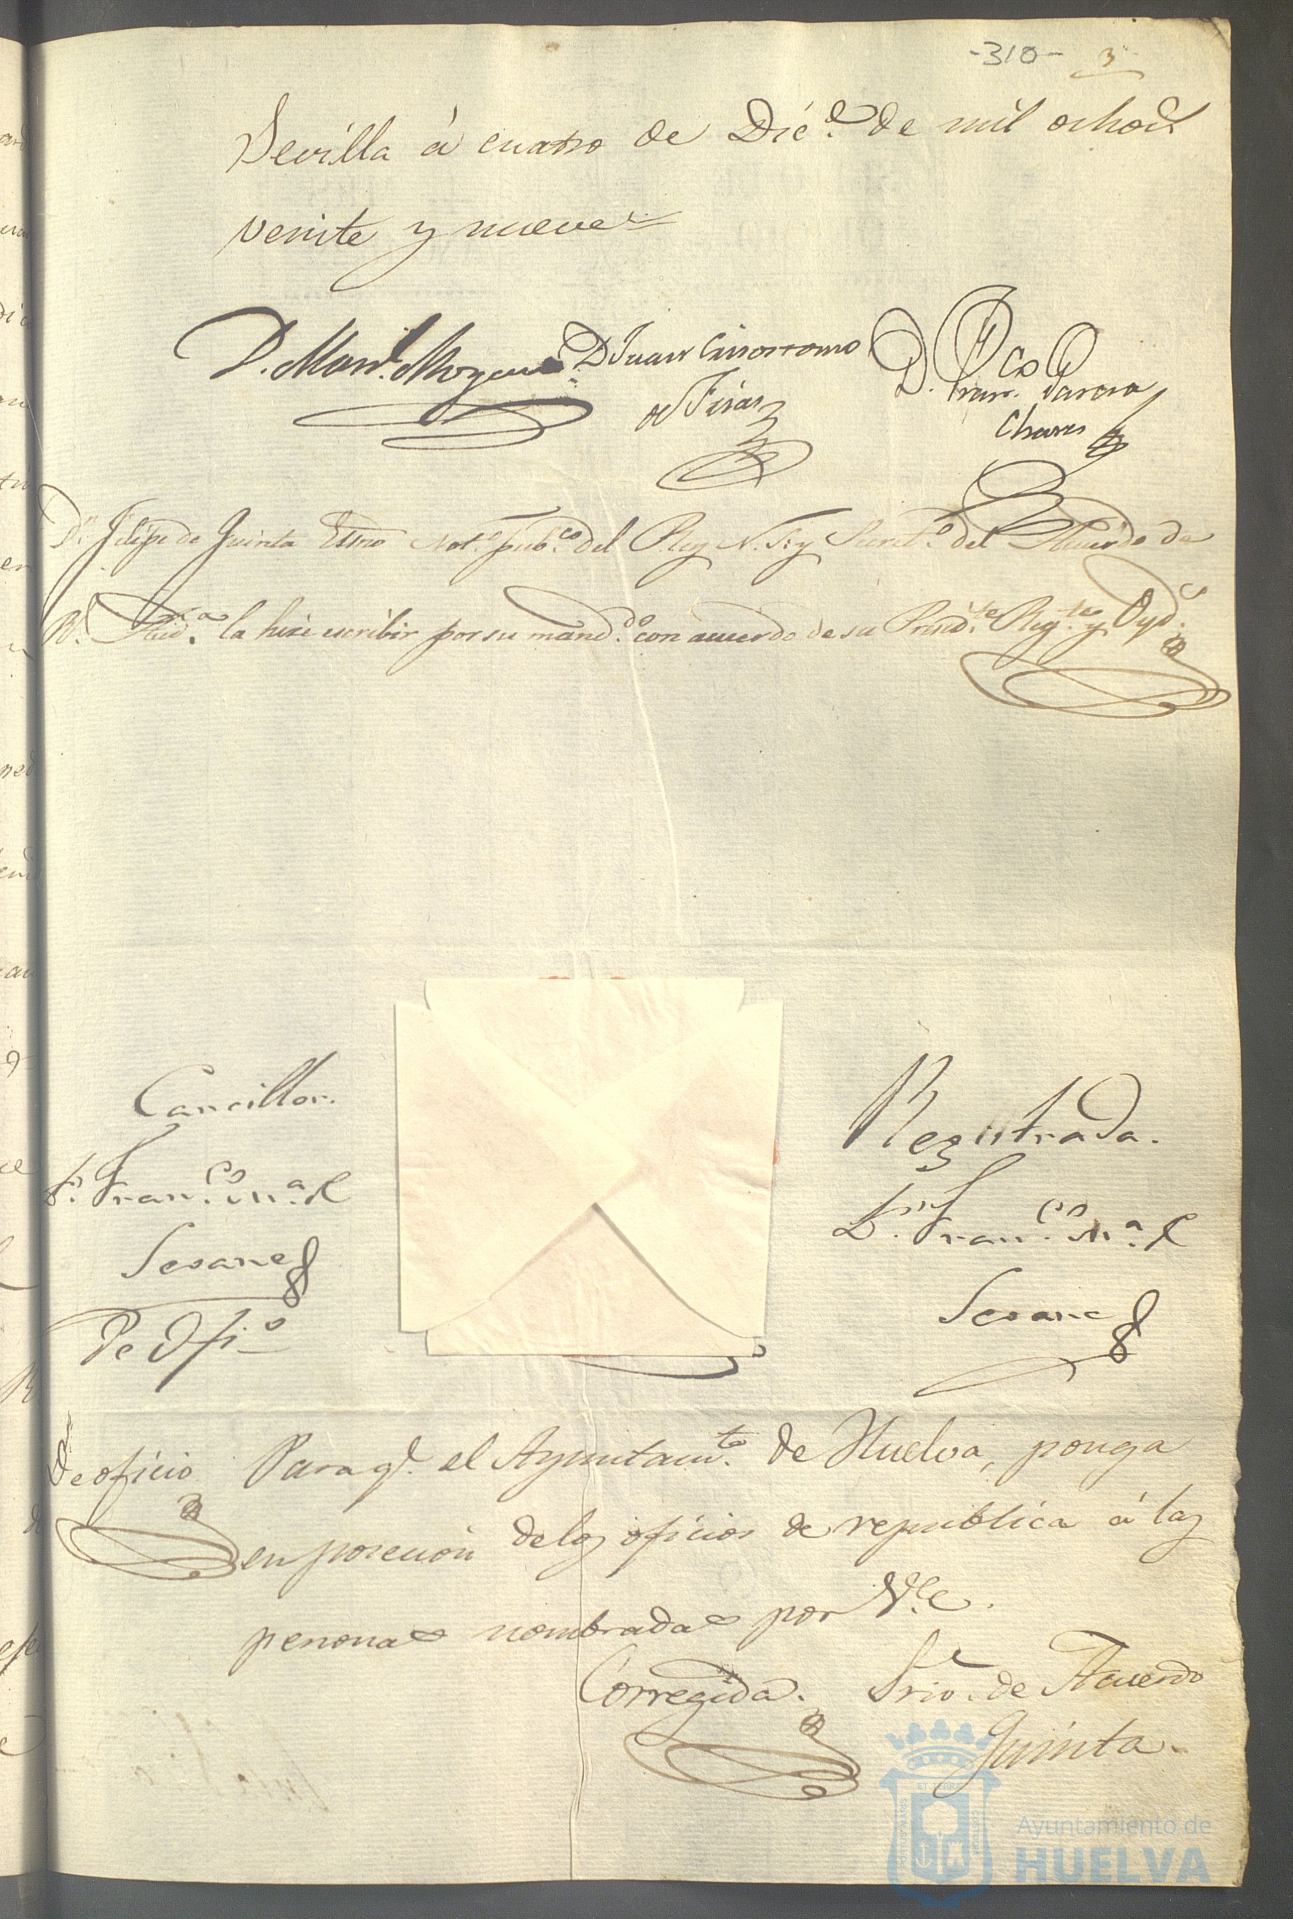 -310- 3
Sevilla á cuatro de Dic.e de mil ochoc.s
veinte y nueve
D. Man.l D Juan Crisostomo D. Fran.co Garcia
de Chaves
D.n Felipe de Quinta Essno Not.o pub.co del Rey N. S. y Secret.o del Acuerdo de
R. Aud.a la hice escribir por su mand.o con acuerdo de su Presid.te Reg.te y Oyd.s
Canciller.
D. Fran.co M.a
De Ofi.o
Registrada.
D.n Fran.co M.a
De oficio Para q.e el Ayuntam.to de Huelva, ponga
en posecion de los oficios de republica á las
personas nombradas por V.E.
Corregida. Srio. de Acuerdo
Quinta.
Ayuntamiento de
HUELVA